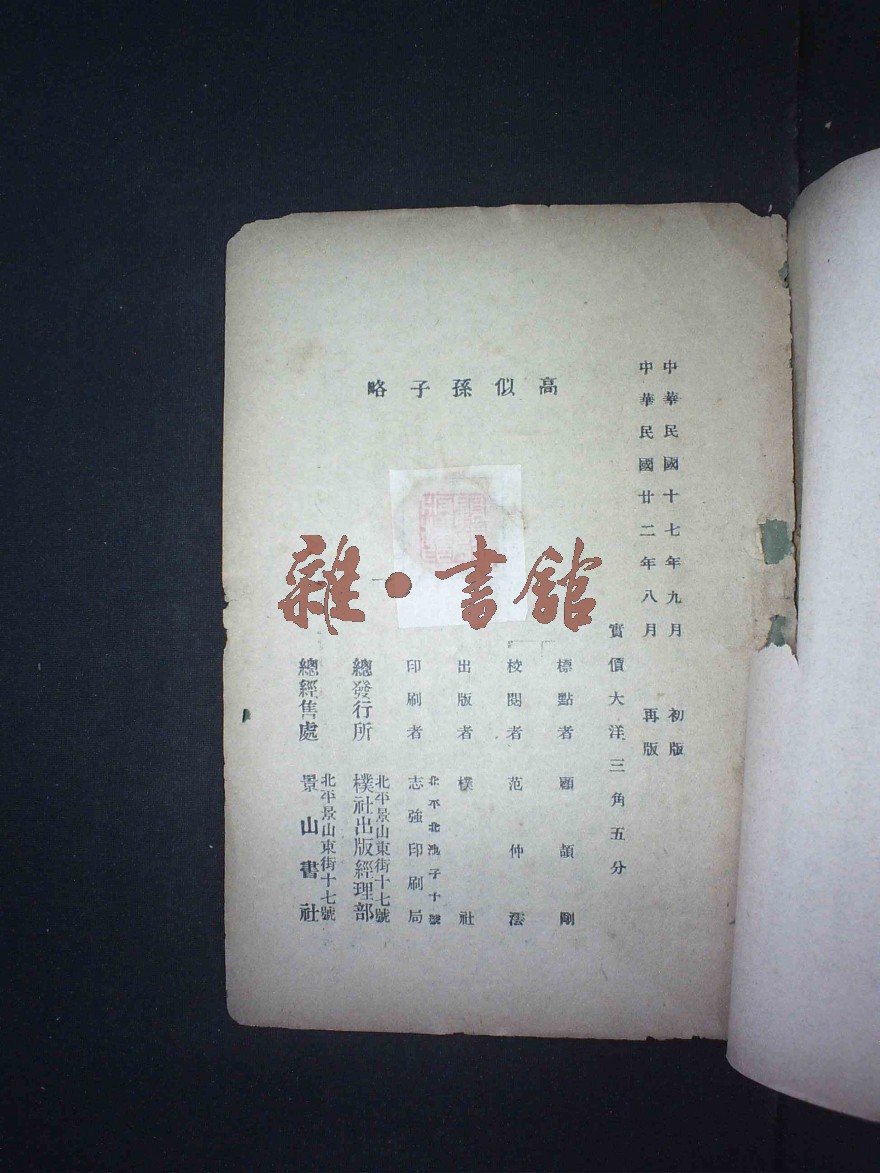 中華民國十七年九月　初版
中華民國廿二年八月　再版
實價大洋三角五分
高似孫子略
標點者　顧頡剛
校閱者　范仲澐
出版者　樸社
北平北池子十號
印刷者　志強印刷局
北平景山東街十七號
總發行所　樸社出版經理部
北平景山東街十七號
總經售處　景山書社
雜·書館